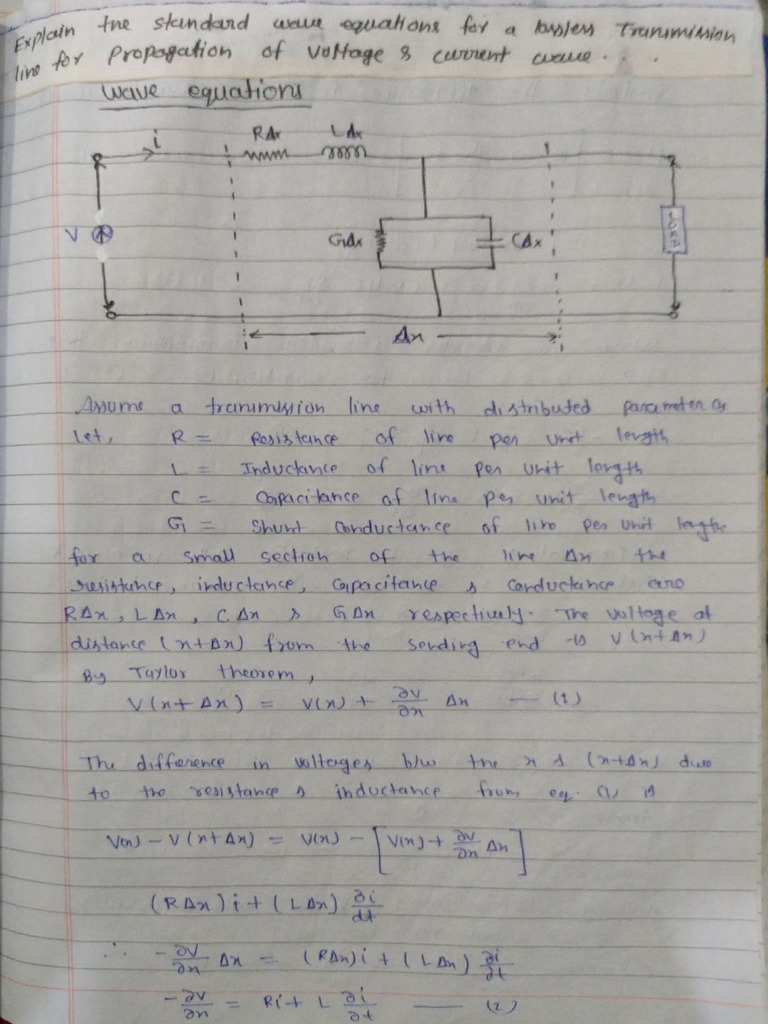 Explain the standard wave equations for a lossless Transmission
line for propagation of voltage & current wave...
Wave equations
i RΔx LΔx
V GΔx CΔx LOAD
Δx
Assume a transmission line with distributed parameters
Let, R = Resistance of line per unit length
L = Inductance of line per unit length
C = Capacitance of line per unit length
G = Shunt Conductance of line per unit length
for a small section of the line Δx the
resistance, inductance, capacitance & conductance are
RΔx, LΔx, CΔx & GΔx respectively. The voltage at
distance (x+Δx) from the sending end is V(x+Δx)
By Taylor theorem,
V(x+Δx) = V(x) + ∂v/∂x Δx — (1)
The difference in voltages b/w the x & (x+Δx) due
to the resistance & inductance from eq. (1) is
V(x) – V(x+Δx) = V(x) – [V(x) + ∂v/∂x Δx]
(RΔx)i + (LΔx) ∂i/dt
∴ -∂v/∂x Δx = (RΔx)i + (LΔx) ∂i/∂t
-∂v/∂x = Ri + L ∂i/∂t — (2)